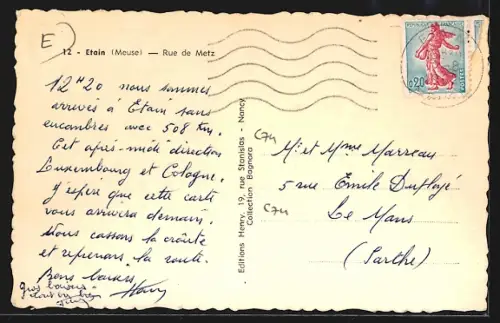 E
12 - Etain (Meuse) — Rue de Metz
12H20 nous sommes
arrivés à Etain sans
encombres avec 508 Km.
Cet après-midi direction
Luxembourg et Cologne.
J'espère que cette carte
vous arrivera demain.
Nous cassons la croûte
et reprenons la route.
Bons baisers
Gros baisers
Editions Henry, 19, rue Stanislas - Nancy
Collection Bagnora
0,20
C74
Mr et Mme Marreau
5 rue Emile Duployé
C74
Le Mans
(Sarthe)